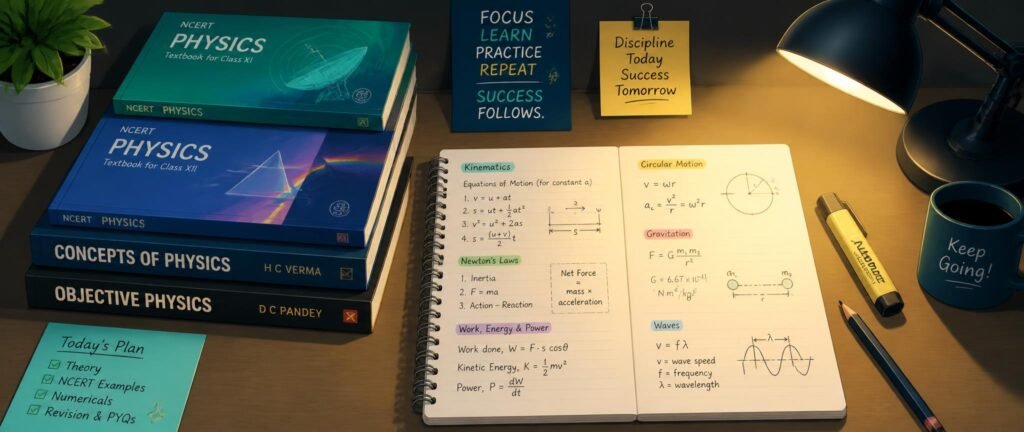 NCERT
PHYSICS
Textbook for Class XI
NCERT PHYSICS
NCERT
PHYSICS
Textbook for Class XII
NCERT PHYSICS
CONCEPTS OF PHYSICS H C VERMA
OBJECTIVE PHYSICS D C PANDEY
Today's Plan
☑ Theory
☑ NCERT Examples
☑ Numericals
☑ Revision & PYQs
FOCUS
LEARN
PRACTICE
REPEAT
SUCCESS
FOLLOWS.
Discipline
Today
Success
Tomorrow
Kinematics
Equations of Motion (for constant a)
1. v = u + at
2. s = ut + ½at²
3. v² = u² + 2as
4. s = (u+v)/2 t
a
s
Newton's Laws
1. Inertia
2. F = ma
3. Action - Reaction
Net Force
= mass ×
acceleration
Work, Energy & Power
Work done, W = F · s cosθ
Kinetic Energy, K = ½mv²
Power, P = dW/dt
Circular Motion
v = ωr
a꜀ = v²/r = ω²r
r
Gravitation
F = G m₁m₂/r²
G = 6.67 × 10⁻¹¹
N m²/kg²
m₁ m₂
r
Waves
v = fλ
v = wave speed
f = frequency
λ = wavelength
λ
Keep
Going!